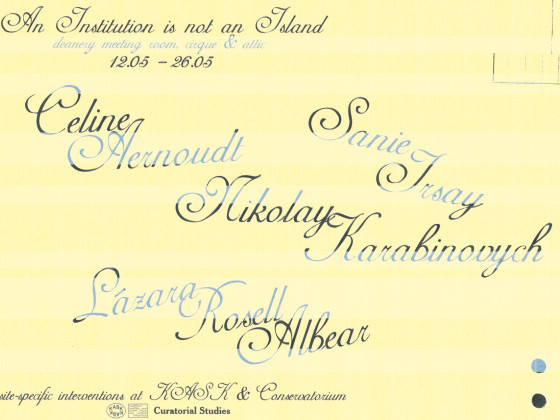 An Institution is not an Island
deanery meeting room, cirque & attic
12.05 – 26.05
Celine
Aernoudt
Sanie
Irsay
Nikolay
Karabinovych
Lázara
Rosell
Albear
site-specific interventions at KASK & Conservatorium
Curatorial Studies